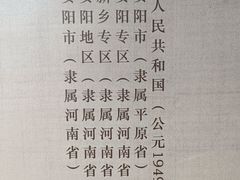 人民共和国（公元1949
安阳市（隶属平原省）
安阳专区（隶属河南省）
新乡专区（隶属河南省）
安阳地区（隶属河南省）
安阳市（隶属河南省）